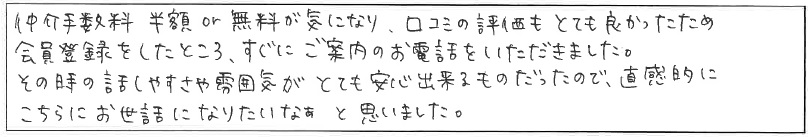 仲介手数料 半額 or 無料が気になり、口コミの評価も とても良かったため
会員登録をしたところ、すぐに ご案内のお電話をいただきました。
その時の話しやすさや雰囲気が とても安心出来るものだったので、直感的に
こちらに お世話に なりたいなぁ と 思いました。